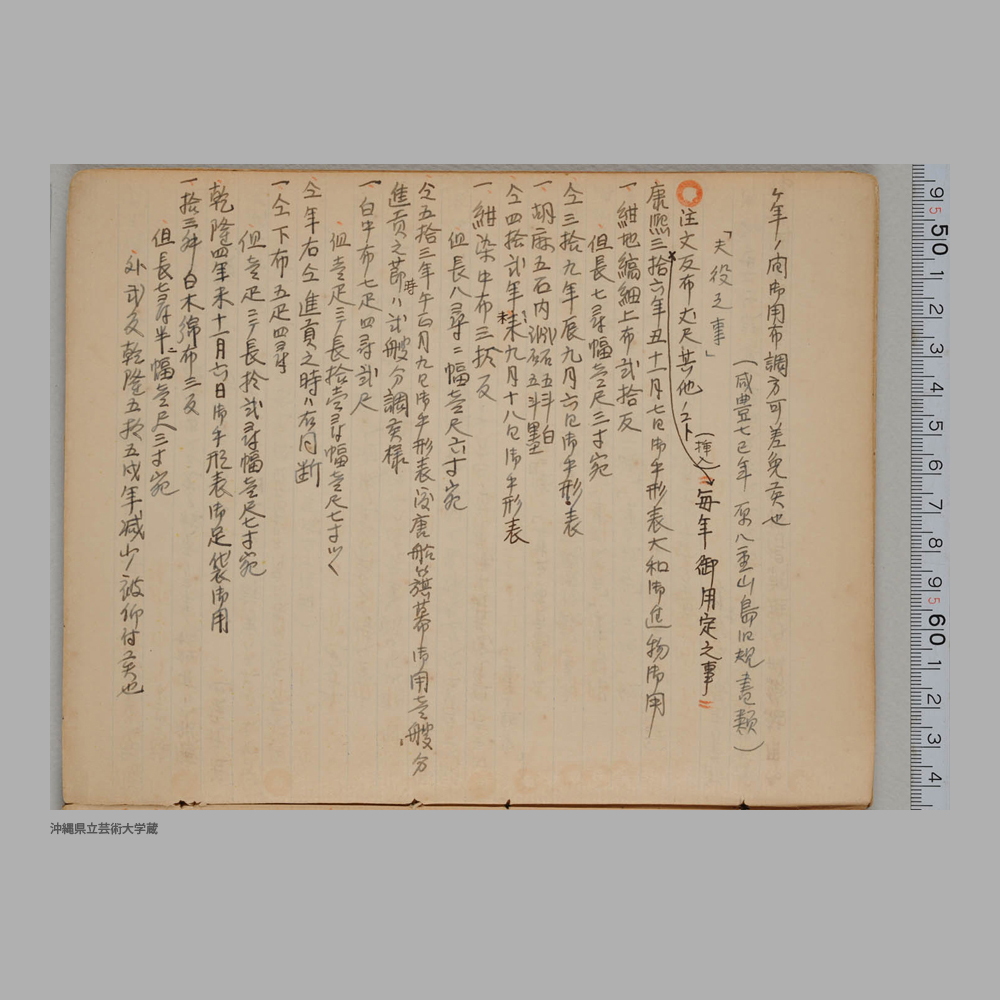 ケ年ノ間御用布調方可差免ヿ也
「夫役之事」
(咸豊七巳年 原八重山島旧規書類)
注文反布丈尺其他ノコト
(挿入)
毎年御用定之事
康熙三拾六年丑十一月七日御手形表大和御進物御用
一紺地縞細上布弐拾反
但長七尋幅壱尺三寸宛
仝三拾九年辰九月六日御手形表
一胡麻五石内
仝四拾弐年未九月十八日御手形表
一紺染中布三拾反
但長八尋ニ幅壱尺六寸宛
仝五拾三年午
進貢之節ハ弐艘分調
時
一白中布七疋四尋弐尺
但壱疋ニ〆長拾壱尋幅壱尺七寸ツヽ
仝年右仝進貢之時ハ右同断
一仝下布五疋四尋
但壱疋ニ〆長拾弐尋幅壱尺七寸宛
乾隆四年未十一月六日御手形表御足袋御用
一拾三舛白木綿布三反
但長七尋半ニ幅壱尺三寸宛
外弐反乾隆五拾五戌年減少被仰付
沖縄県立芸術大学蔵
95
50
1
2
3
4
5
6
7
8
95
60
1
2
3
4